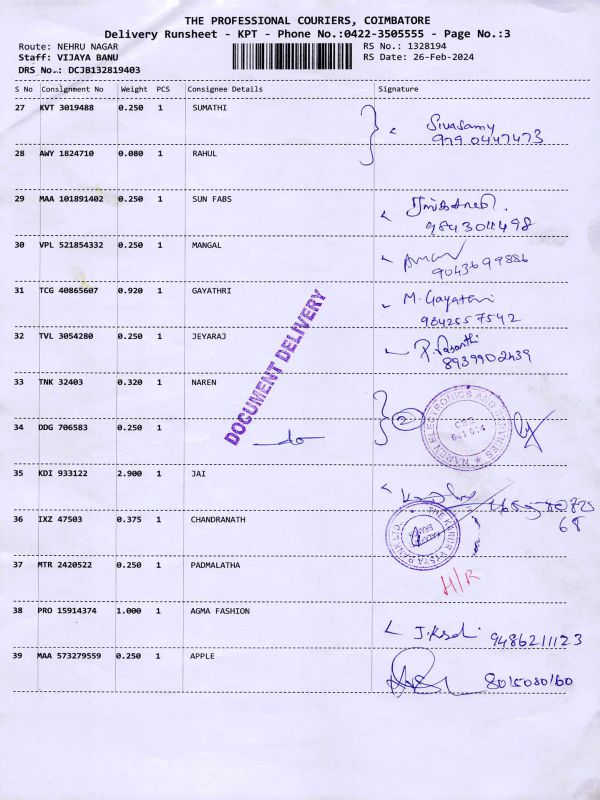 THE PROFESSIONAL COURIERS, COIMBATORE
Delivery Runsheet - KPT - Phone No.:0422-3505555 - Page No.:3
Route: NEHRU NAGAR RS No.: 1328194
Staff: VIJAYA BANU RS Date: 26-Feb-2024
DRS No.: DCJB132819403
S No Consignment No Weight PCS Consignee Details Signature
27 KVT 3019488 0.250 1 SUMATHI
Sivasamy
9790447473
28 AWY 1824710 0.080 1 RAHUL
29 MAA 101891402 0.250 1 SUN FABS
30 VPL 521854332 0.250 1 MANGAL
9043699886
31 TCG 40865607 0.920 1 GAYATHRI M. Gayathri
9842557542
32 TVL 3054280 0.250 1 JEYARAJ P. Vasanthi
8939902439
DOCUMENT DELIVERY
33 TNK 32403 0.320 1 NAREN
2
34 DDG 706583 0.250 1
do
35 KDI 933122 2.900 1 JAI
36 IXZ 47503 0.375 1 CHANDRANATH
68
THE KARUR VYSYA BANK LTD.
37 MTR 2420522 0.250 1 PADMALATHA H/R
38 PRO 15914374 1.000 1 AGMA FASHION
9486211123
39 MAA 573279559 0.250 1 APPLE 8015080160